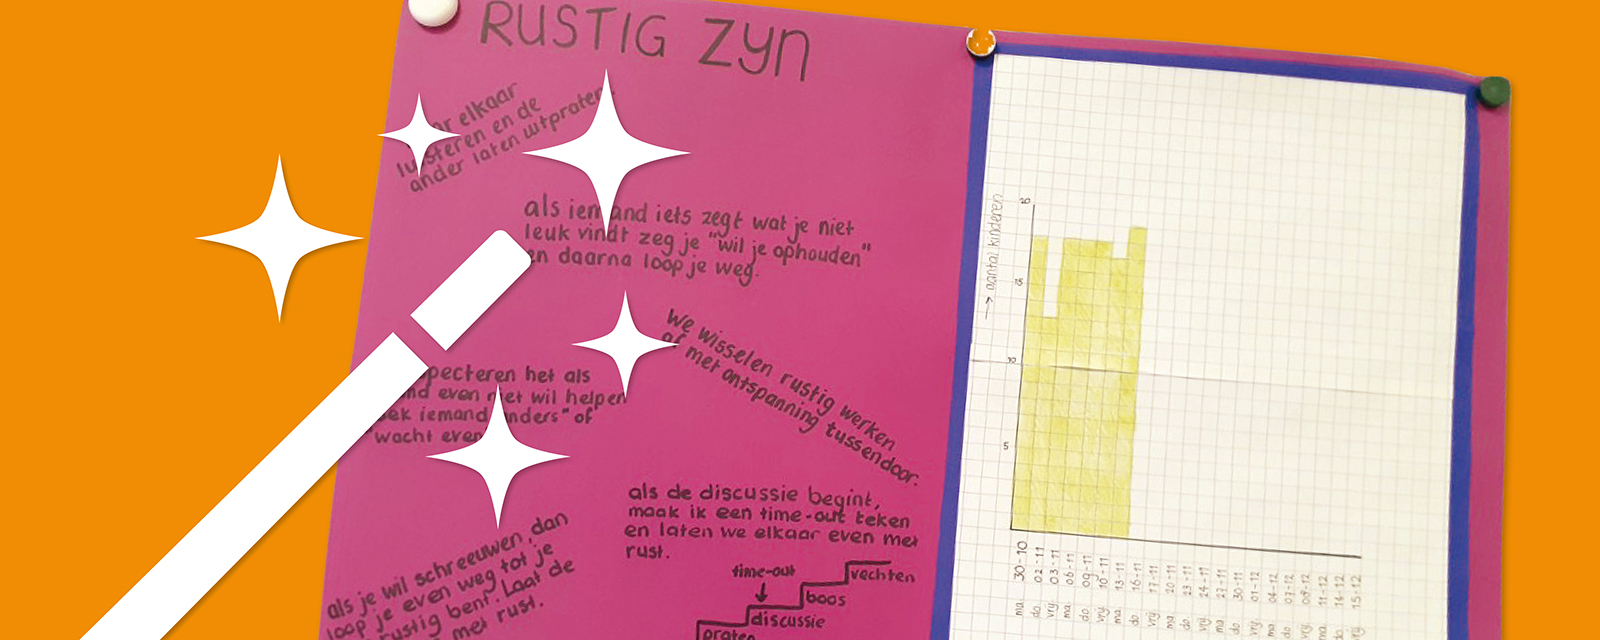 RUSTIG ZYN
elkaar
luisteren en de
ander laten uitpraten.
als iemand iets zegt wat je niet
leuk vindt zeg je "wil je ophouden"
en daarna loop je weg.
We wisselen rustig werken
af met ontspanning tussendoor.
pecteren het als
even niet wil helpen
iemand anders" of
"wacht even
als de discussie begint,
maak ik een time-out teken
en laten we elkaar even met
rust.
als je wil schreeuwen, dan
loop je even weg tot je
rustig bent. Laat de
met rust.
time-out
vechten
boos
discussie
praten
→ aantal kinderen
15
10
5
ma. 30-10
do. 02-11
vrij. 03-11
ma. 06-11
do. 09-11
vrij. 10-11
ma. 13-11
do. 16-11
vrij. 17-11
ma. 20-11
do. 23-11
vrij. 24-11
ma. 27-11
do. 30-11
vrij. 01-12
ma. 04-12
do. 07-12
vrij. 08-12
ma. 11-12
do. 14-12
vrij. 15-12